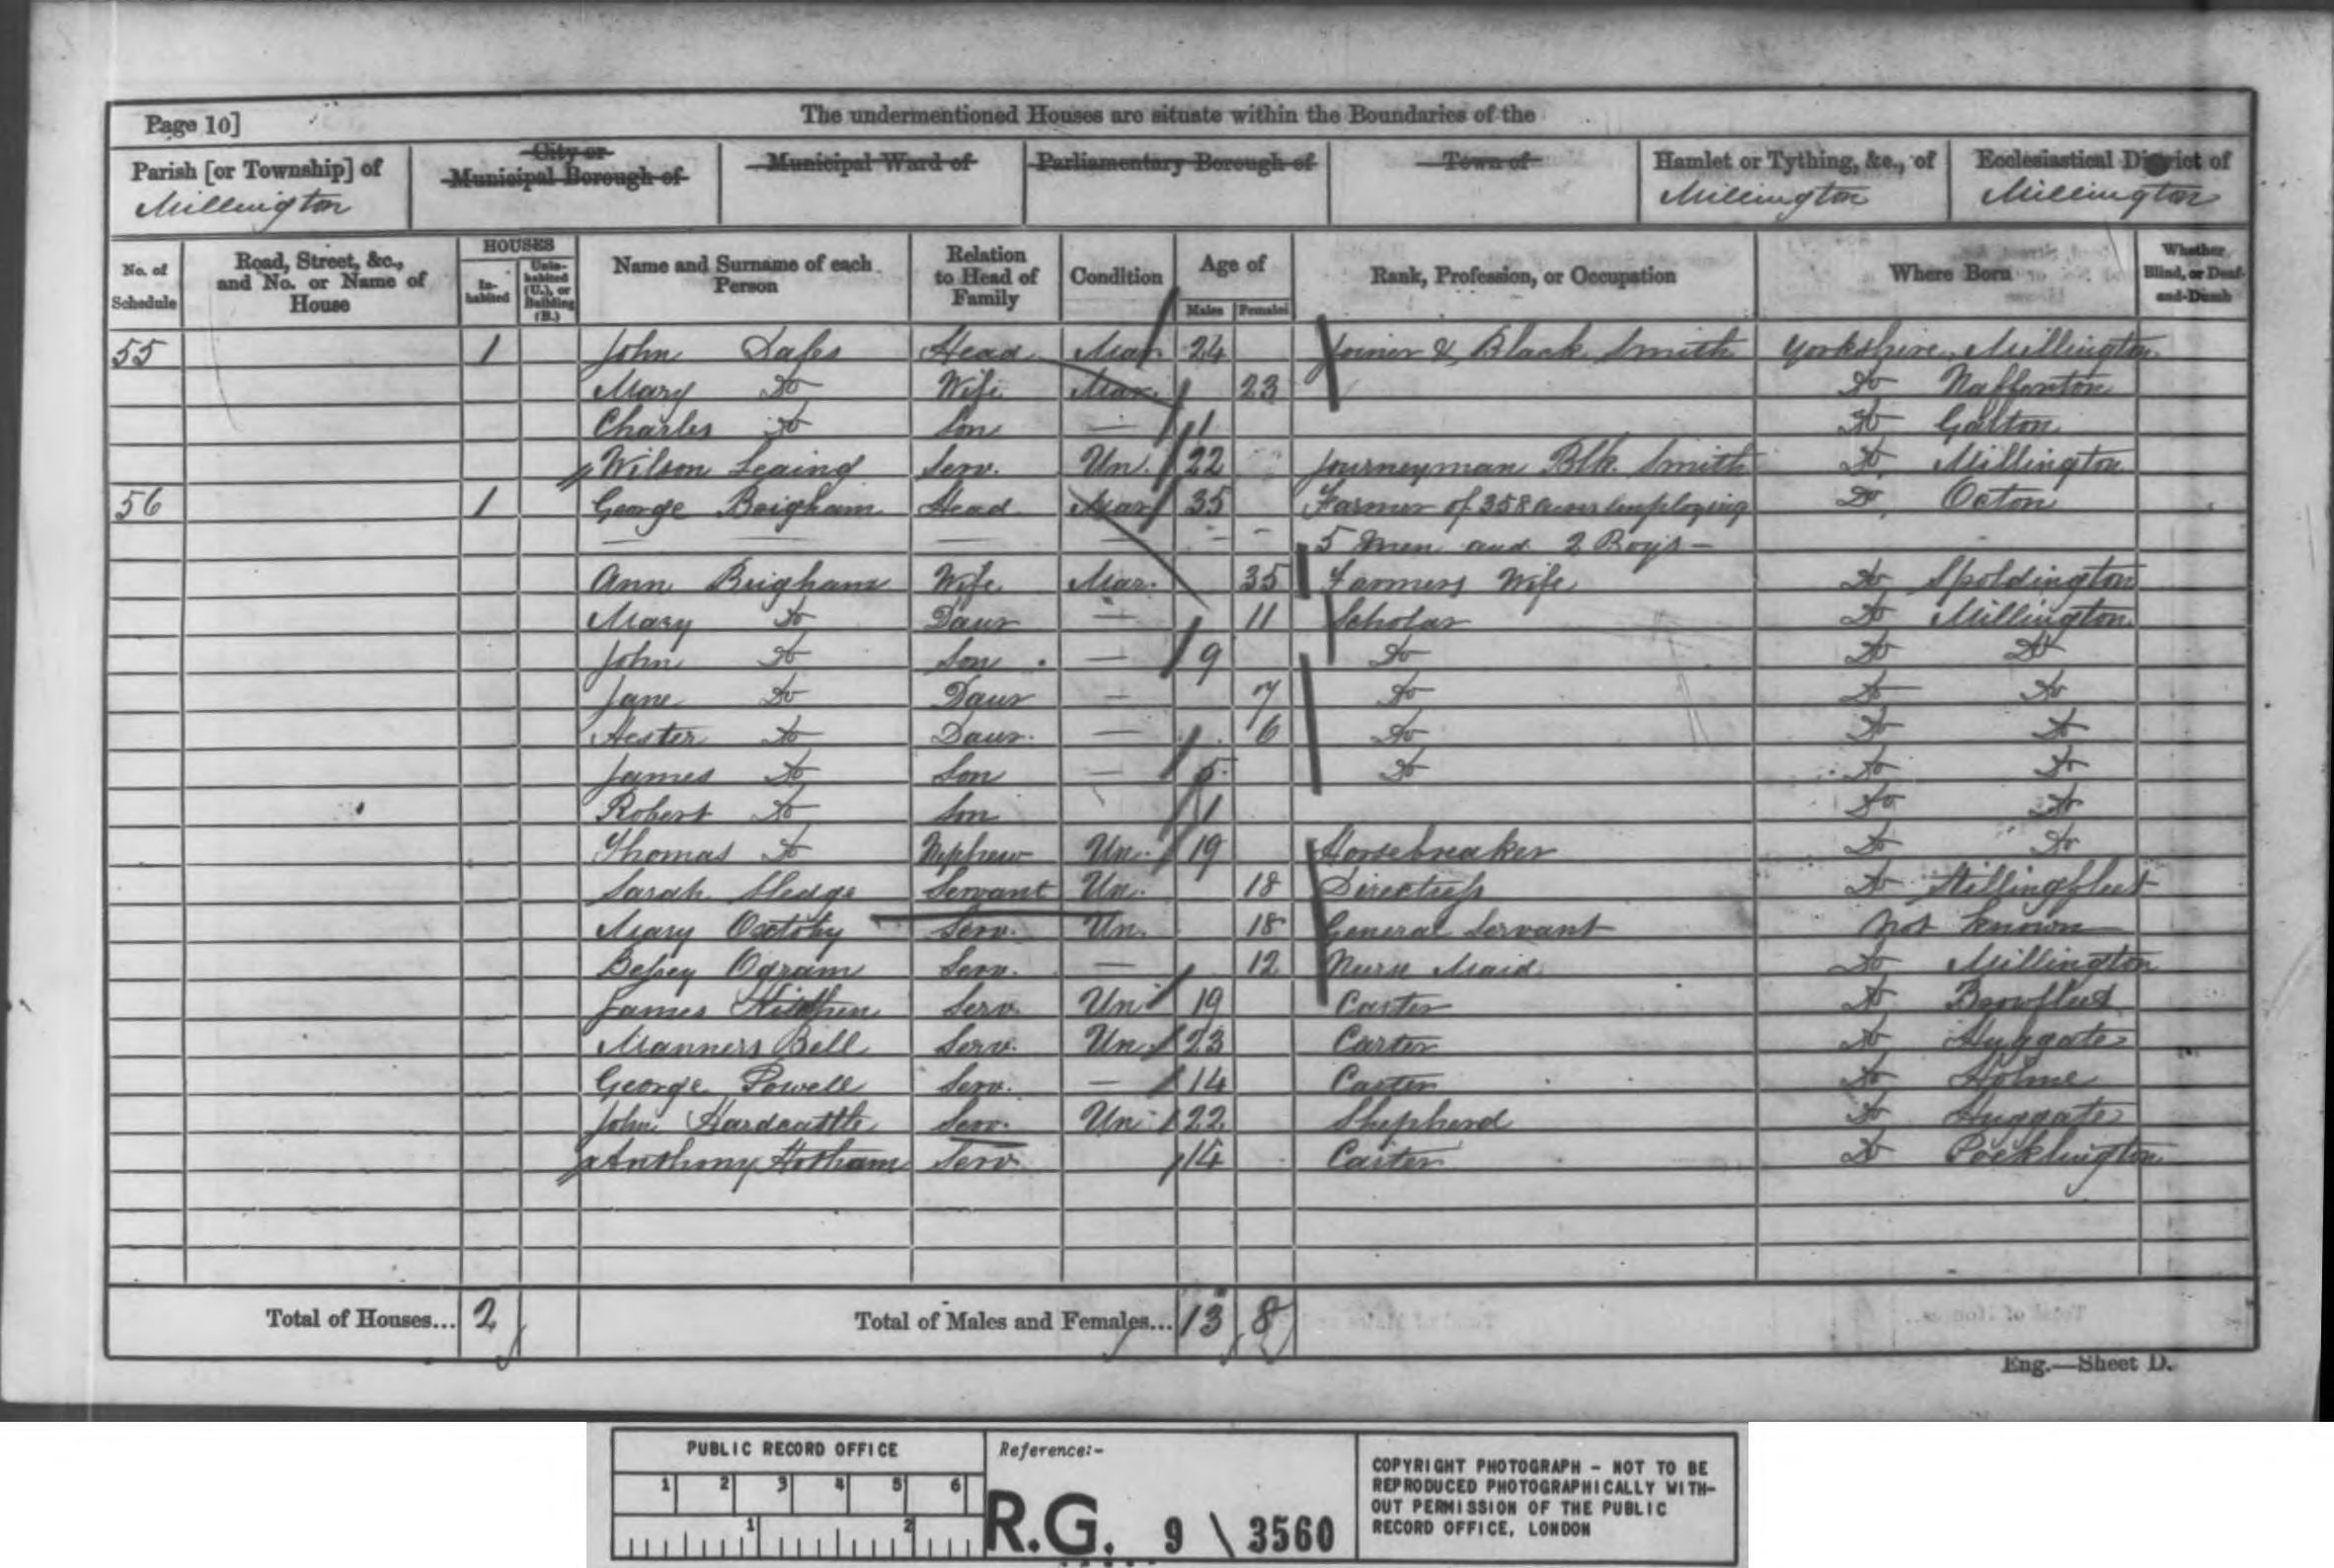 Page 10] The undermentioned Houses are situate within the Boundaries of the
Parish [or Township] of City or Municipal Borough of Municipal Ward of Parliamentary Borough of Town of Hamlet or Tything, &c., of Ecclesiastical District of
Millington Millington Millington
No. of Schedule Road, Street, &c., and No. or Name of House HOUSES Inhabited Uninhabited (U.), or Building (B.) Name and Surname of each Person Relation to Head of Family Condition Age of Males Females Rank, Profession, or Occupation Where Born Whether Blind, or Deaf-and-Dumb
55 1 John Head Mar 24 Joiner & Black Smith Yorkshire Millington
Mary Do Wife Mar. 23 Do Nafferton
Charles Do Son — 1 Do
Wilson Serv. Un. 22 Journeyman Blk. Smith Do Millington
56 1 George Brigham Head Mar 35 Farmer of 358 acres employing Do Octon
5 Men and 2 Boys —
Ann Brigham Wife Mar. 35 Farmers Wife Do Spoldington
Mary Do Daur — 11 Scholar Do Millington
John Do Son — 9 Do Do Do
Jane Do Daur — 7 Do Do Do
Hester Do Daur. — 6 Do Do Do
James Do Son — 5 Do Do Do
Robert Do Son 1 Do Do
Thomas Do Nephew Un. 19 Horsebreaker Do Do
Sarah Servant Un. 18 Directress Do Stillingfleet
Mary Oxtoby Serv. Un. 18 General Servant Not Known
Bessey Ogram Serv. — 12 Nurse Maid Do Millington
James Serv. Un 19 Carter Do
Manners Bell Serv. Un. 23 Carter Do Huggate
George Powell Serv. — 14 Carter Do Holme
John Hardcastle Serv. Un 22 Shepherd Do Huggate
Anthony Hotham Serv 14 Carter Do Pocklington
Total of Houses... 2 Total of Males and Females... 13 8
Eng.—Sheet D.
PUBLIC RECORD OFFICE
1 2 3 4 5 6
1 2
Reference:-
R.G. 9 \ 3560
COPYRIGHT PHOTOGRAPH - NOT TO BE
REPRODUCED PHOTOGRAPHICALLY WITH-
OUT PERMISSION OF THE PUBLIC
RECORD OFFICE, LONDON